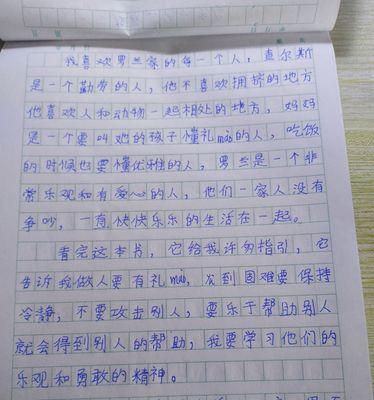 我喜欢罗兰家的每一个人，查尔斯
是一个勤劳的人，他不喜欢拥挤的地方
他喜欢人和动物一起相处的地方，妈妈
是一个要叫她的孩子懂礼mao的人，吃饭
的时候也要懂优雅的人，罗兰是一个非
常乐观和有爱心的人，他们一家人没有
争吵，一有快快乐乐的生活在一起。
看完这本书，它给我许多指引，它
告诉我做人要有礼mao，发到困难要保持
冷静，不要攻击别人，要乐于帮助别人
就会得到别人的帮助，我要学习他们的
乐观和勇敢的精神。